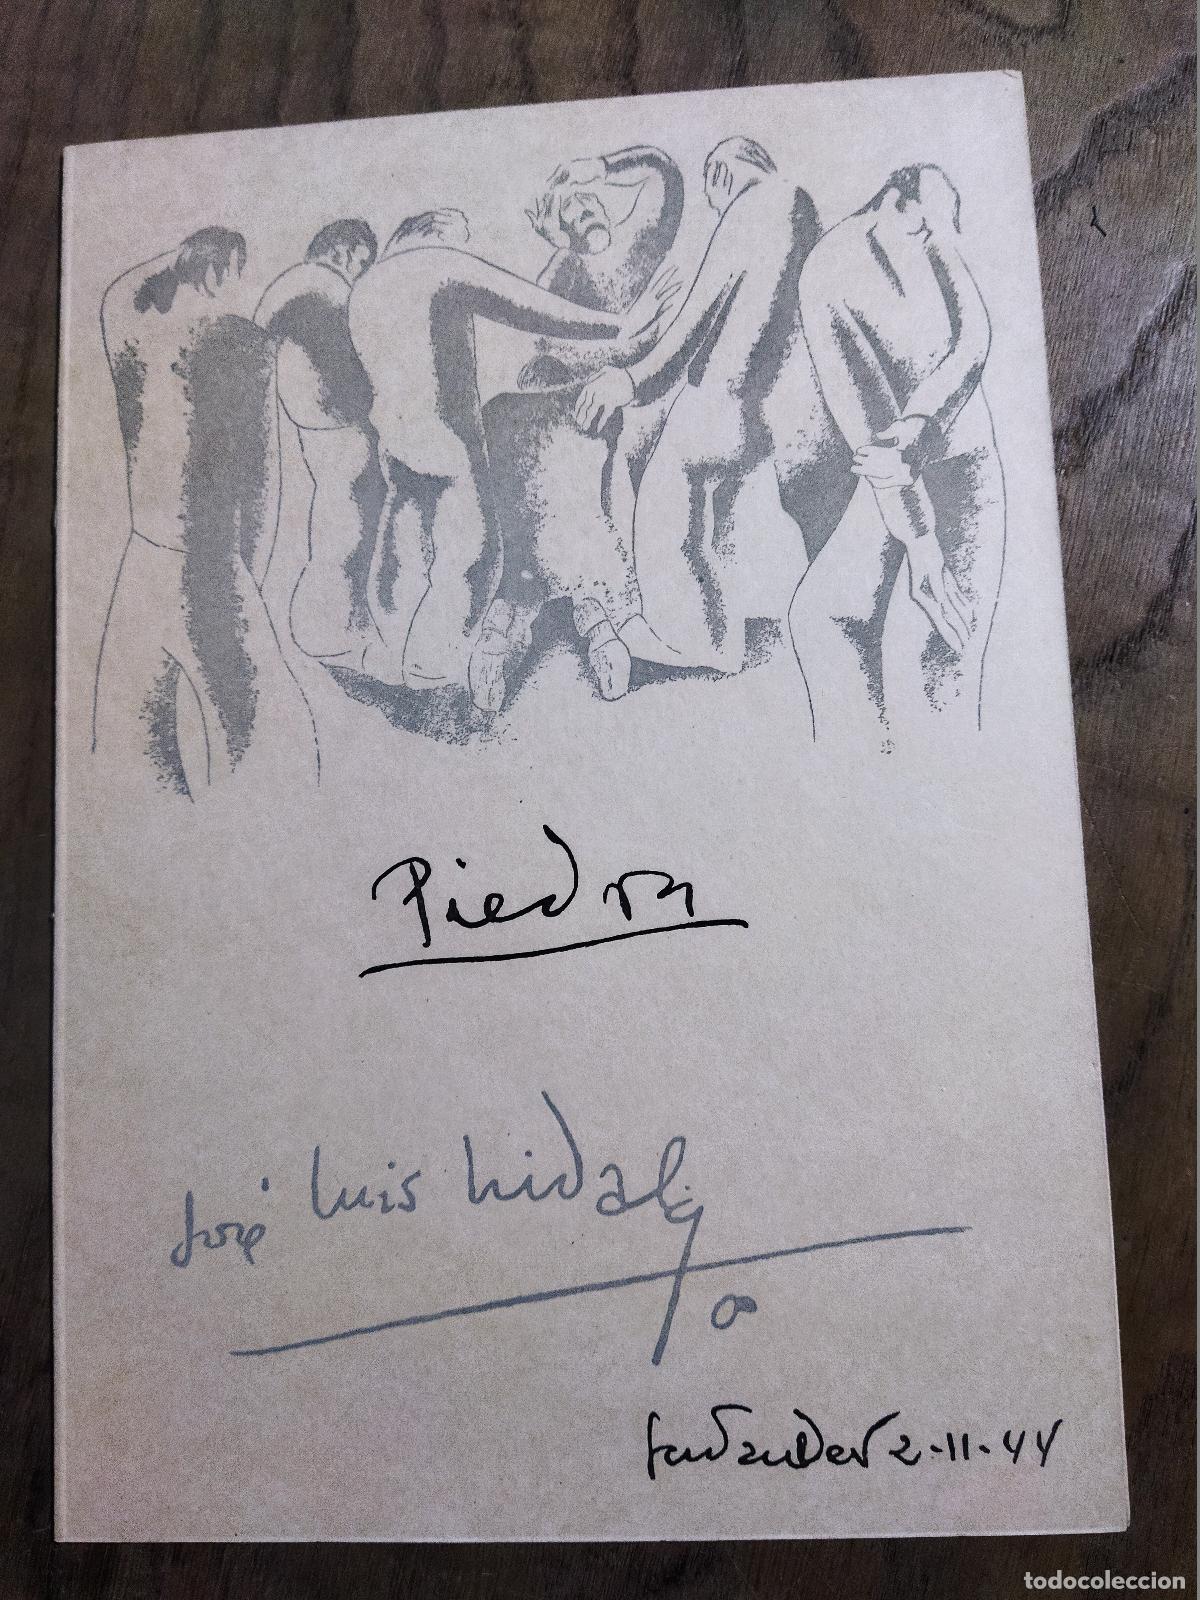 Piedra
José Luis Hidalgo
Santander 2-11-44
todocoleccion